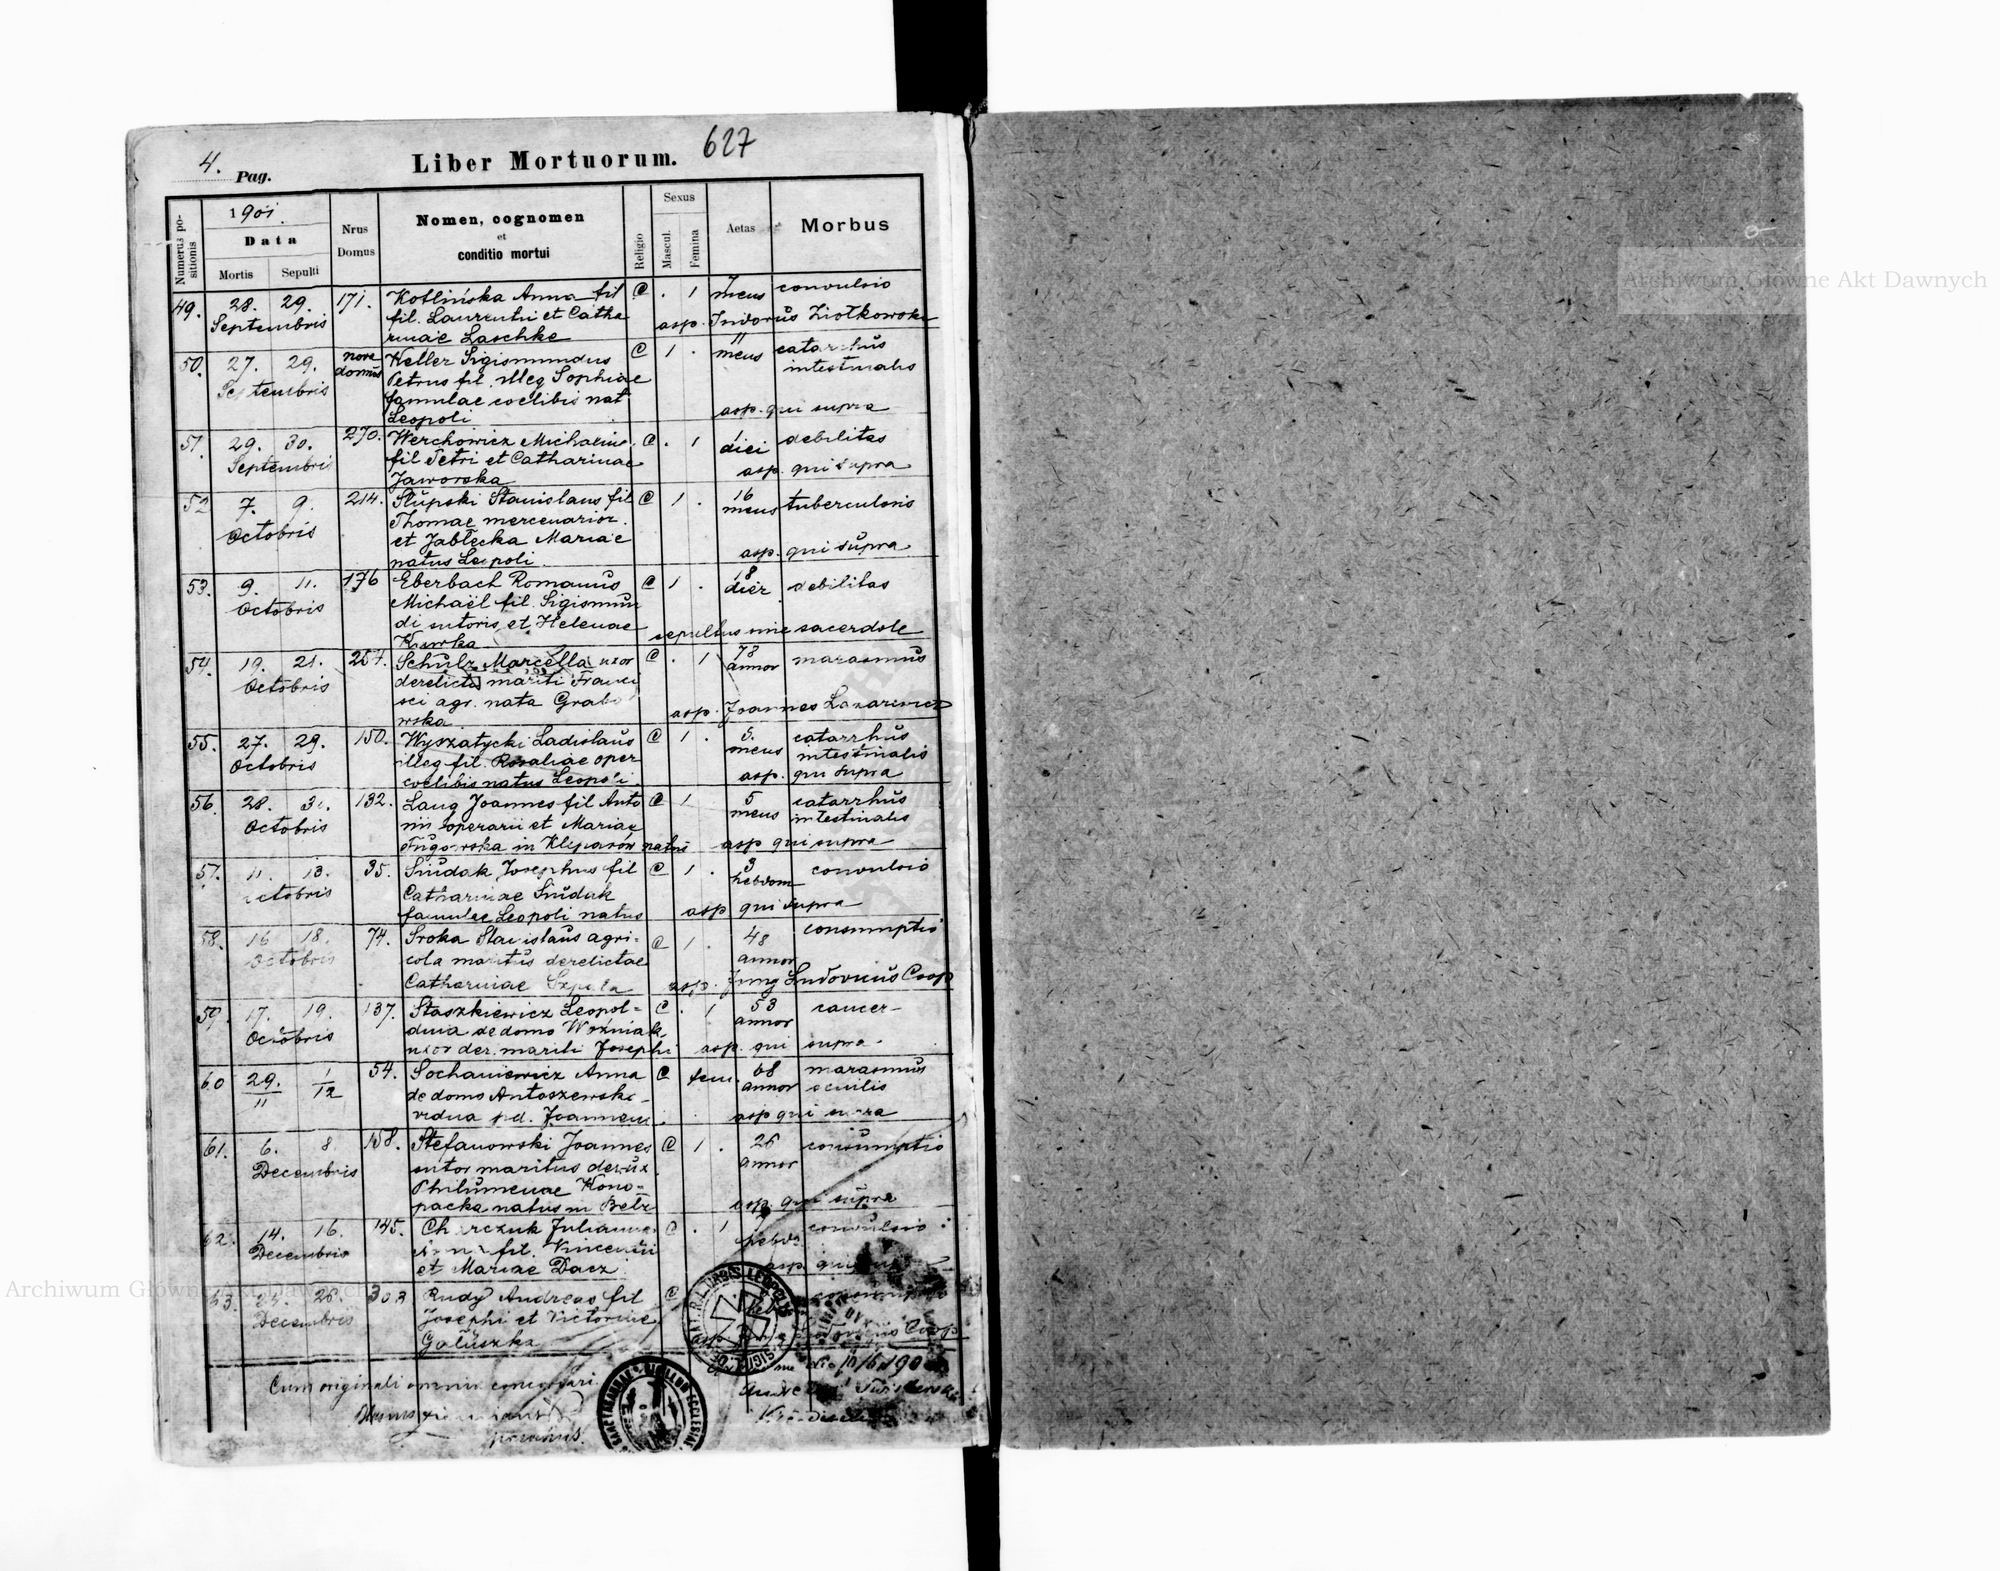 4. Pag.
Liber Mortuorum.
627
Numerus positionis
1901.
Data
Mortis
Sepulti
Nrus Domus
Nomen, cognomen
et
conditio mortui
Religio
Sexus
Mascul.
Femina
Aetas
Morbus
49. 28. 29. 171. Kotlińska Anna fil @ . 1 7 convulsio
Septembris fil. Laurentii et Catha mens
rinae Laschke asp. Isidorus Ziołkowski
50. 27. 29. nova domus Keller Sigismundus @ 1 . 11 mens catarrhus
Septembris Petrus fil. illeg Sophiae intestinalis
famulae coelibis nat
Leopoli asp. qui supra
51. 29. 30. 270. Werchowicz Michalina @ . 1 1 diei debilitas
Septembris fil Petri et Catharinae asp. qui supra
Jaworska
52 7. 9. 214. Słupski Stanislaus fil @ 1 . 16 mens tuberculosis
Octobris Thomae mercenarior.
et Jabłecka Mariae asp. qui supra
natus Leopoli
53. 9. 11. 176 Eberbach Romanus @ 1 . 18 dier debilitas
Octobris Michaël fil. Sigismun
di sutoris et Helenae sepultus sine sacerdote
Kurka
54. 19. 21. 257. Schulz Marcella uxor @ . 1 78 annor marasmus
Octobris derelicta mariti Franci
sci agr. nata Grabo asp. Joannes Lazarewicz
wska
55. 27. 29. 150. Wyszatycki Ladislaus @ 1 . 5. mens catarrhus
Octobris illeg fil. Rosaliae oper intestinalis
coelibis natus Leopoli asp. qui supra
56 28. 30. 132. Lang Joannes fil Anto @ 1 5 mens catarrhus
Octobris nii operarii et Mariae intestinalis
in Kleparów natus asp qui supra
57. 11. 13. 35. Siudak Josephus fil @ 1 . 3 hebdom convulsio
Octobris Catharinae Siudak
famulae Leopoli natus asp qui supra
58. 16 18. 74. Sroka Stanislaus agri- @ 1 . 48 annor consumptio
Octobris cola maritus derelictae
Catharinae asp. Jung Ludovicus Coop
59. 17. 19. 137. Staszkiewicz Leopol- @ . 1 53 annor cancer
Octobris dina de domo Woźniak
uxor der. mariti Josephi asp. qui supra
60 29./11 1/12 54. Sochaniewicz Anna @ fem. 68 annor marasmus
de domo Antoszewska senilis
vidua pd. Joannem asp qui supra
61. 6. 8 158. Stefanowski Joannes @ 1 . 26 annor consumptio
Decembris sutor maritus
Philumenae Kono-
packa natus in Bełz asp. qui supra
62. 14. 16. 145. Julianna @ . 1 convulsio
Decembris fil. Vincentii hebd.
et Mariae Dacz asp. qui
63. 26. 303 Rudy Andreas fil @
Decembris Josephi et Victoriae
Gałuszka asp. Jung Ludovicus Coop
Cum originali
parochus.
SIGILLUM ECCLESIAE
Archiwum Główne Akt Dawnych
Archiwum Główne Akt Dawnych